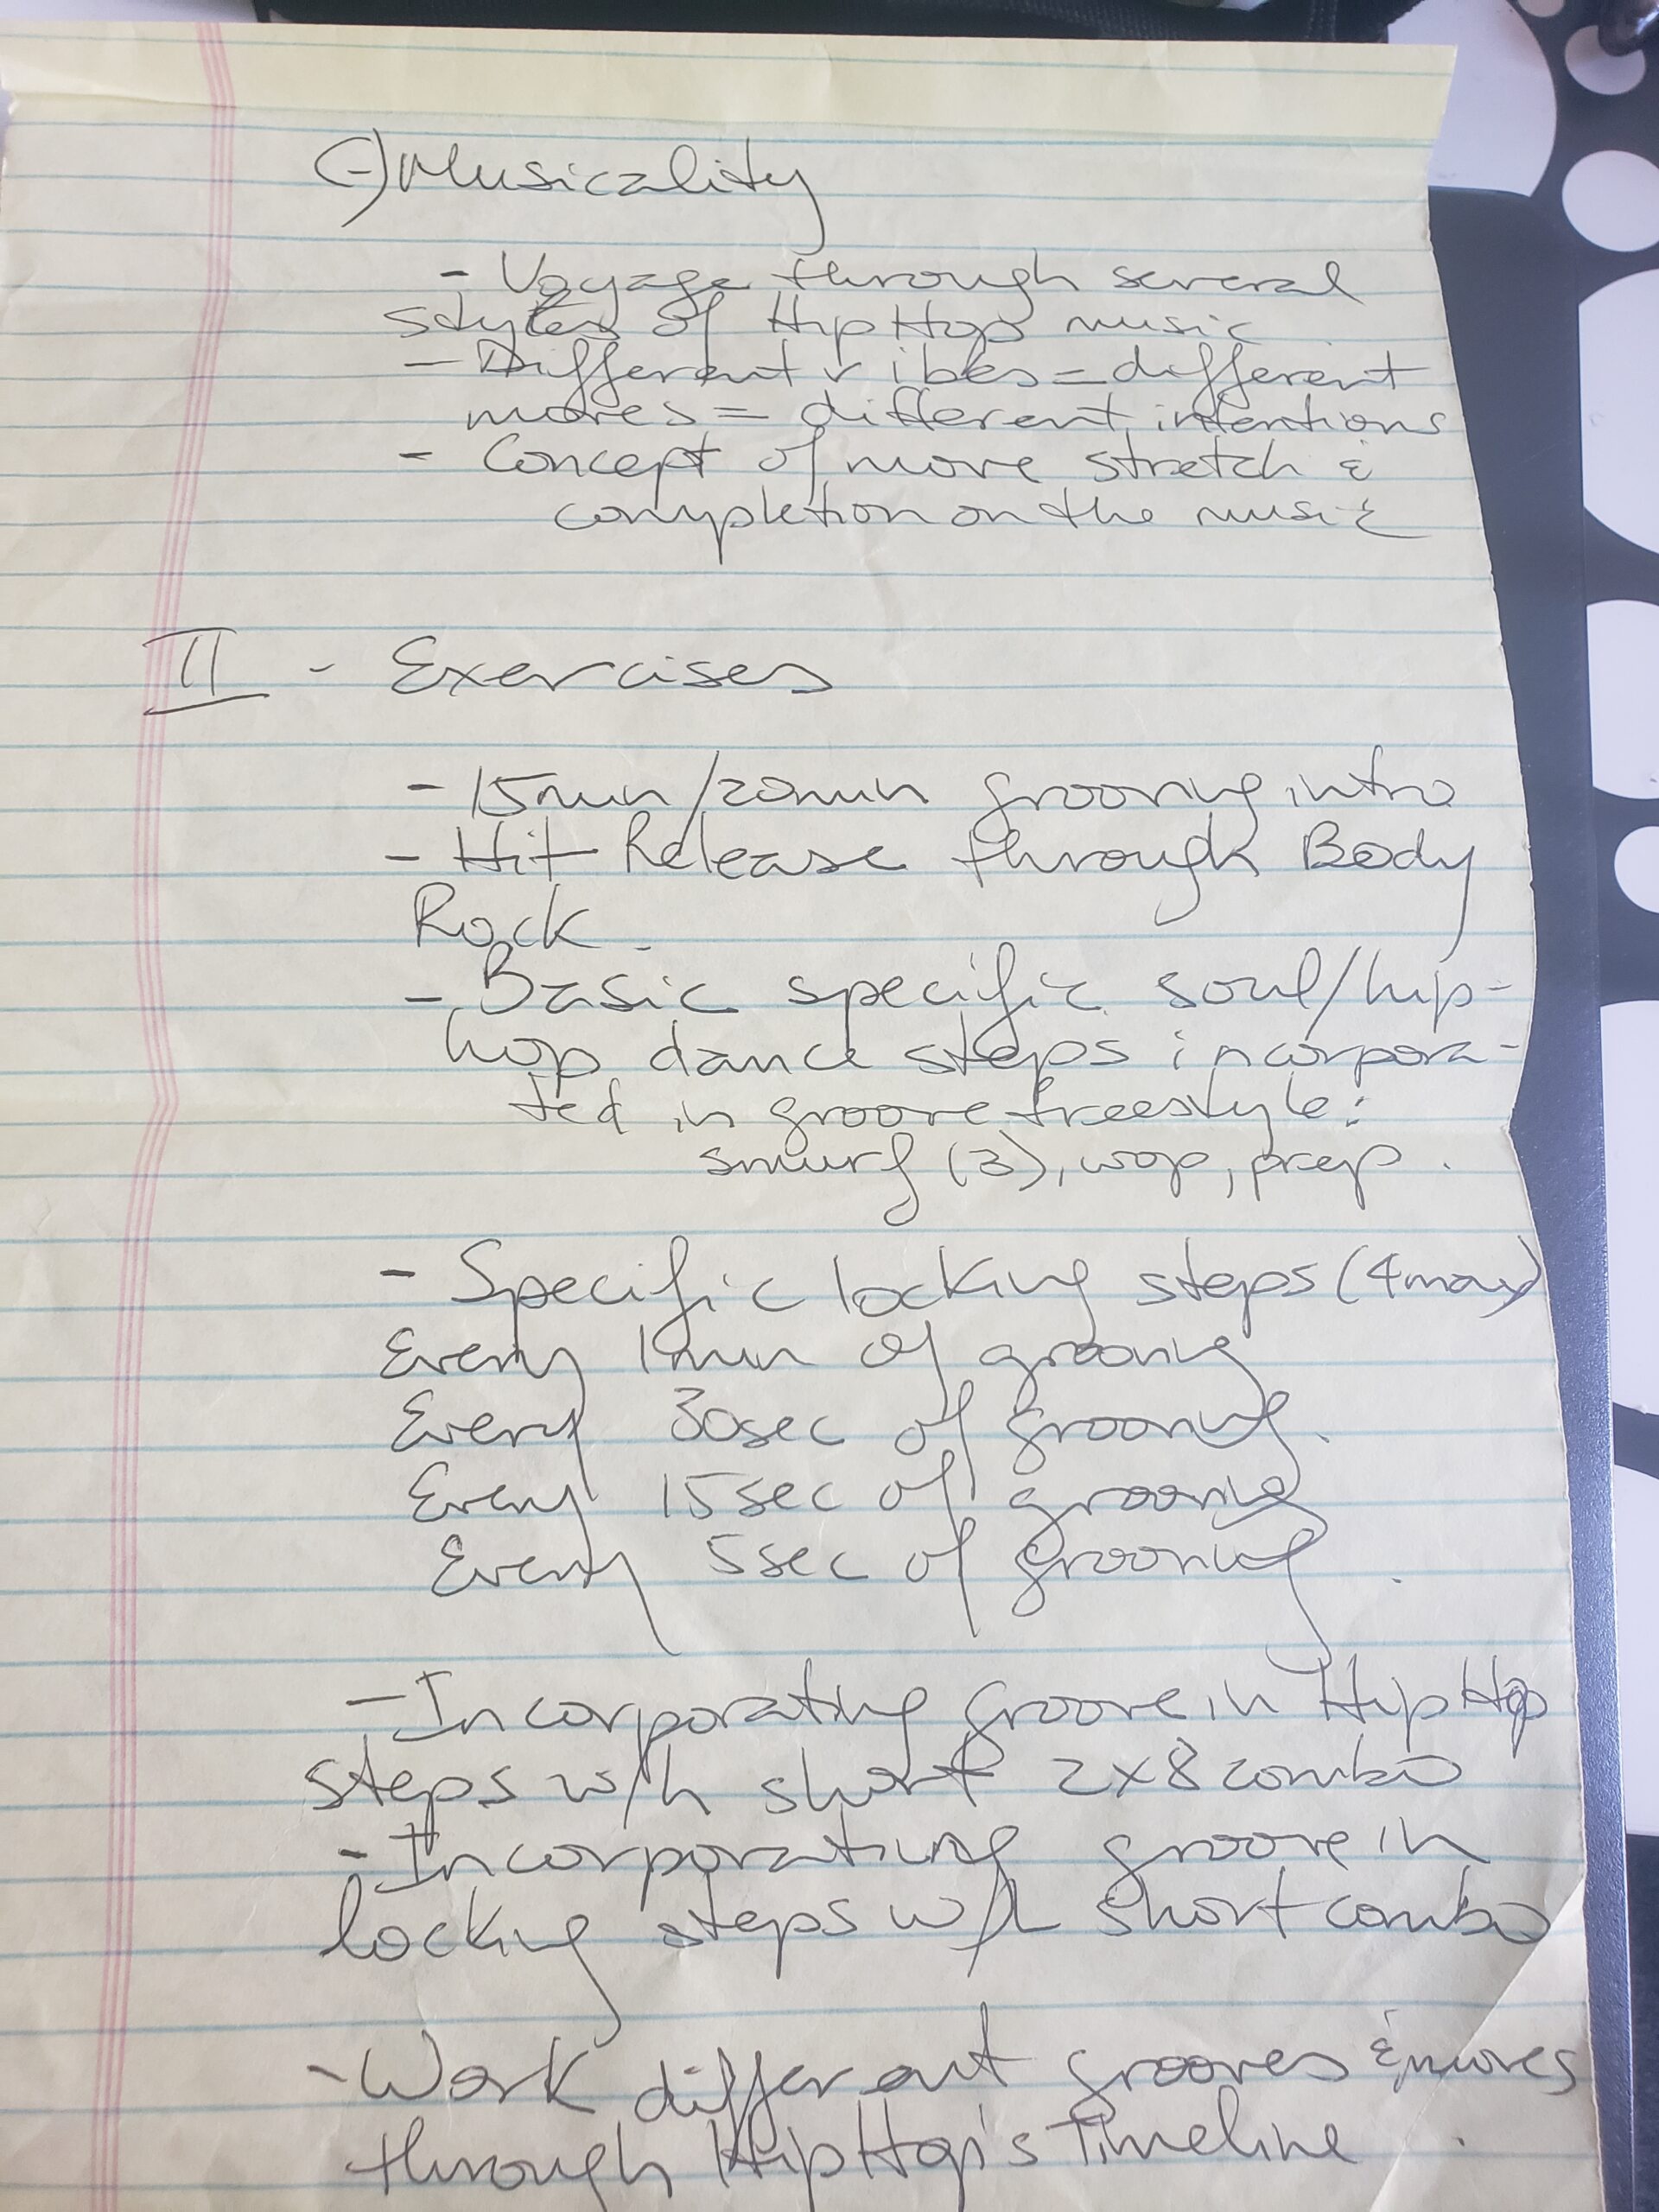 C-) Musicality
- Voyage through several
styles of Hip Hop's music
- Different vibes = different
moves = different intentions
- Concept of move stretch &
completion on the music
II - Exercises
- 15min/20min grooving intro
- Hit Release through Body
Rock.
- Basic specific soul/hip-
hop dance steps incorpora-
ted in groove freestyle:
smurf (3), wop, prep.
- Specific locking steps (4max)
Every 1min of grooving
Every 30sec of grooving.
Every 15sec of grooving
Every 5sec of grooving.
- Incorporating groove in Hip Hop
steps w/h short 2x8 combo
- Incorporating groove in
locking steps w/h short combo
- Work different grooves & moves
through Hip Hop's Timeline.